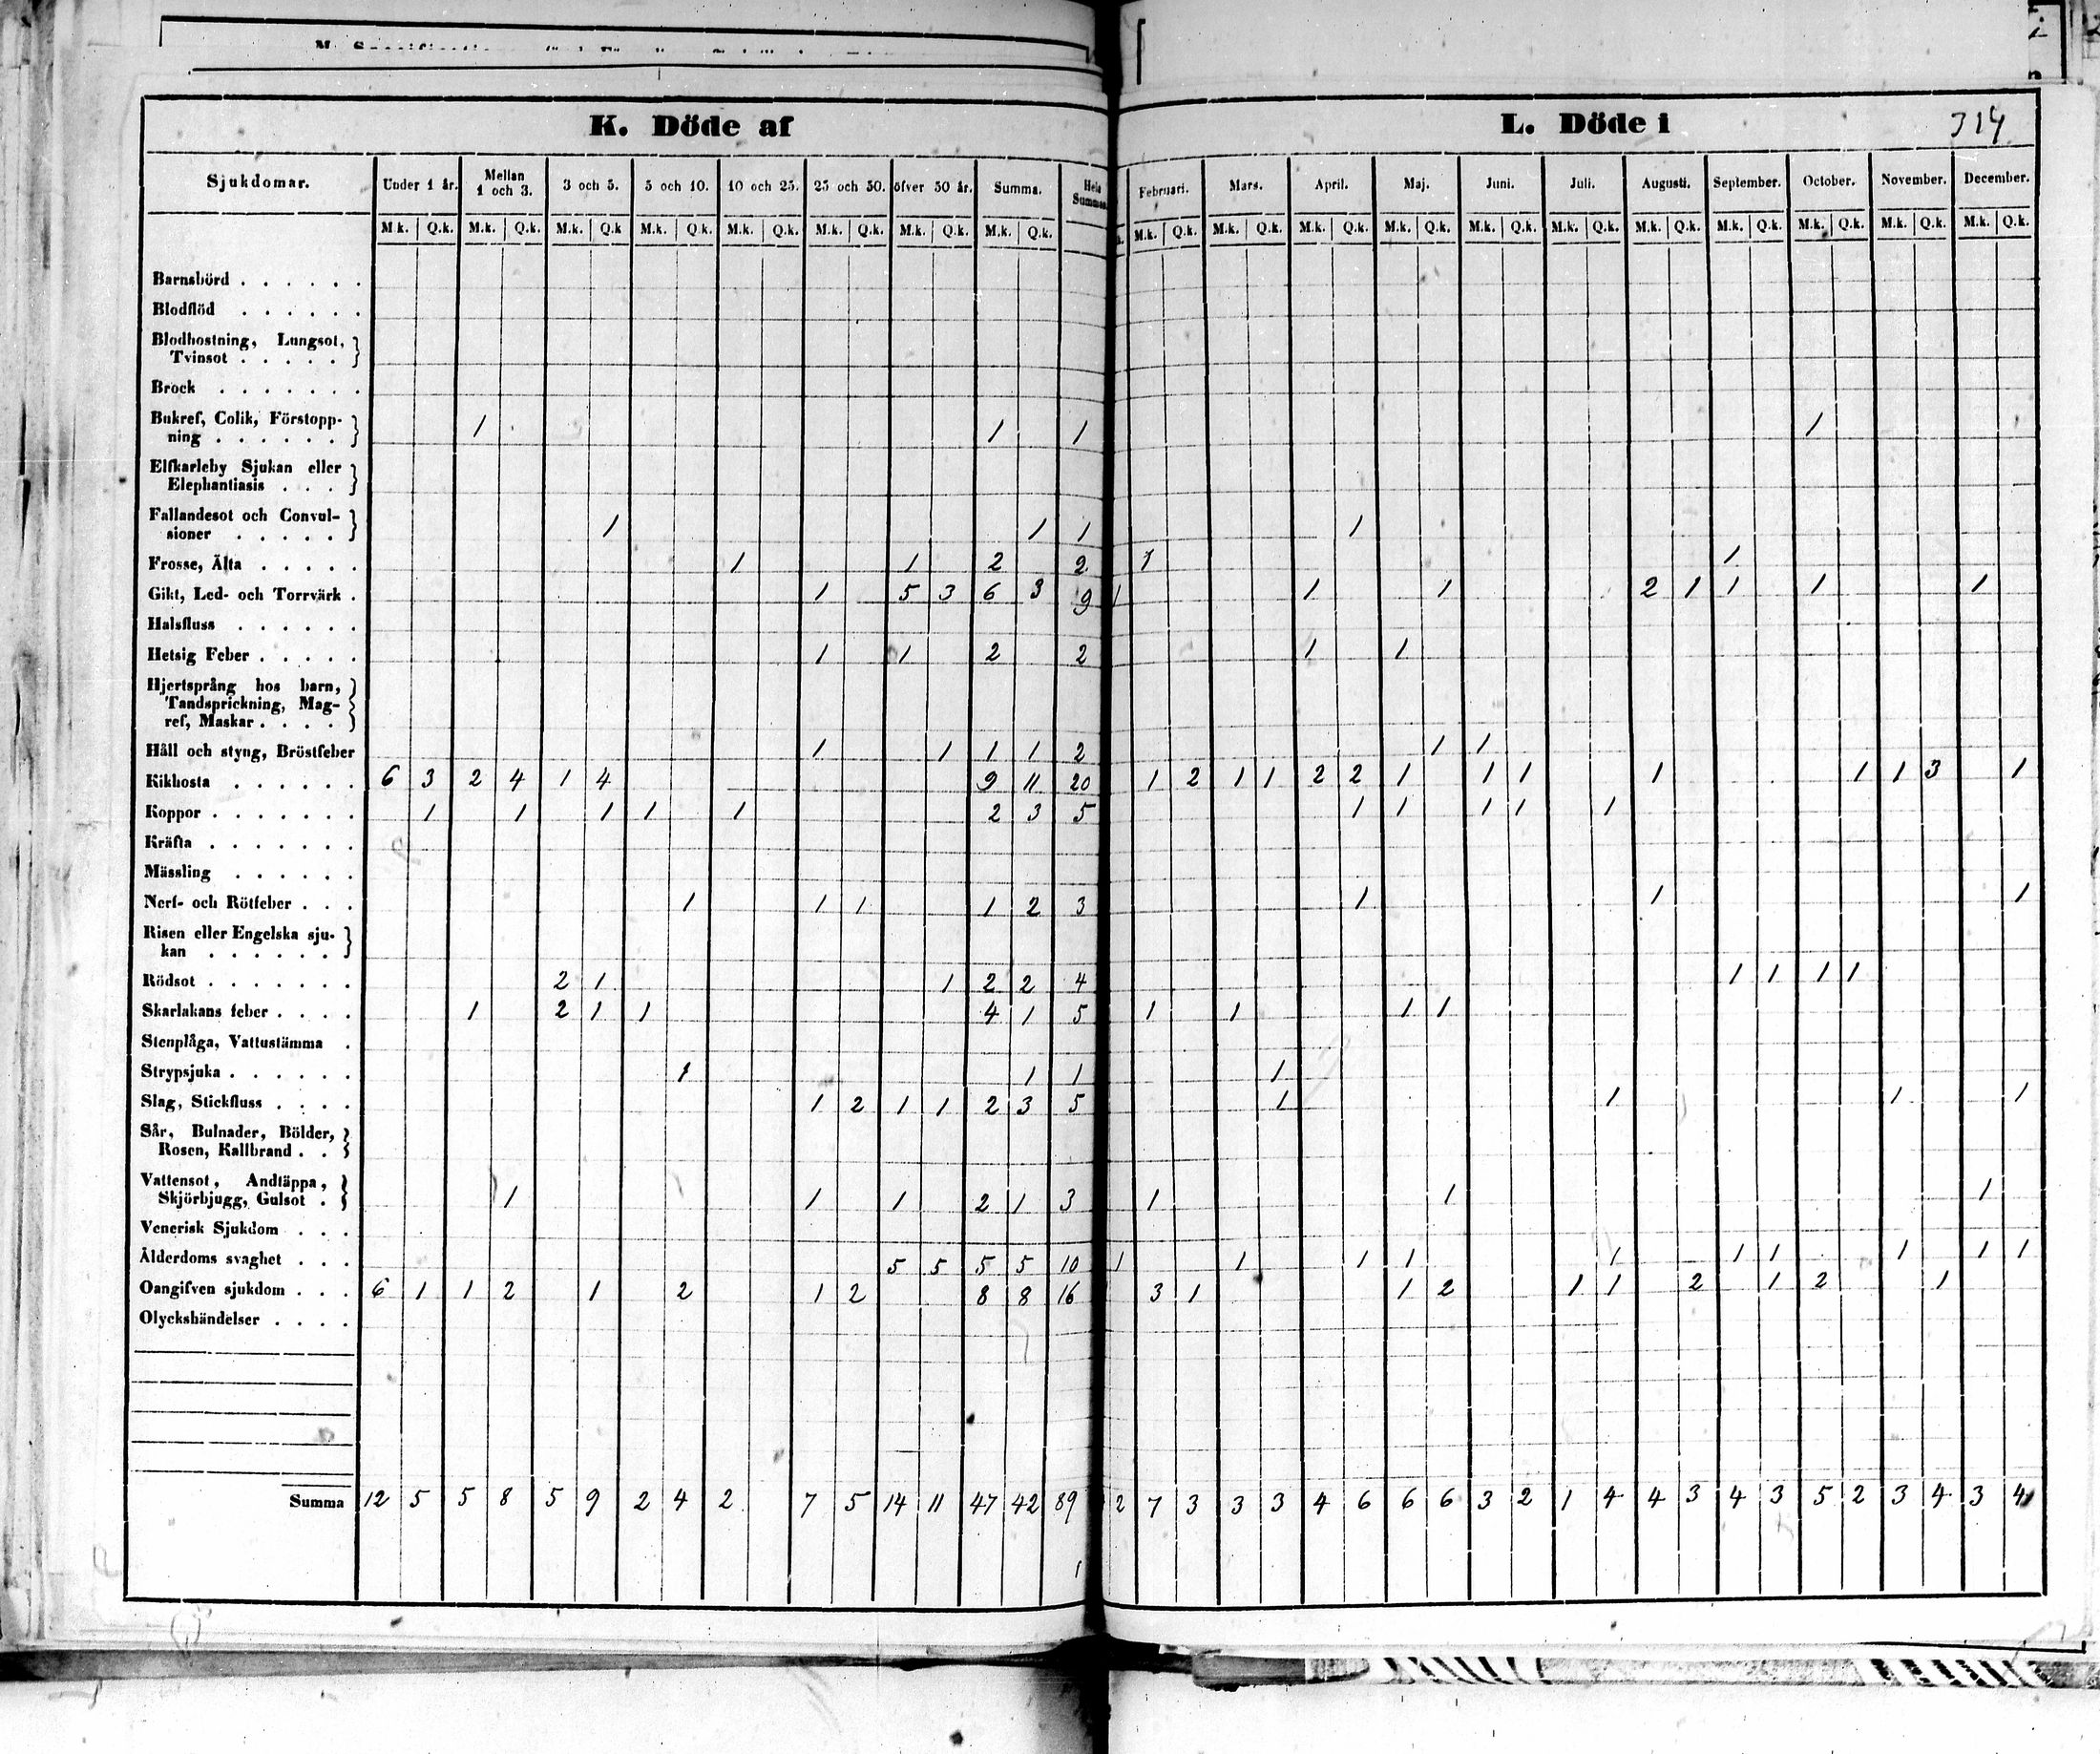 K. Döde af
L. Döde i 314
Sjukdomar. Under 1 år. Mellan 1 och 3. 3 och 5. 5 och 10. 10 och 25. 25 och 50. öfver 50 år. Summa. Hela Summan. Februari. Mars. April. Maj. Juni. Juli. Augusti. September. October. November. December.
M.k. Q.k. M.k. Q.k. M.k. Q.k M.k. Q.k. M.k. Q.k. M.k. Q.k. M.k. Q.k. M.k. Q.k. M.k. Q.k. M.k. Q.k. M.k. Q.k. M.k. Q.k. M.k. Q.k. M.k. Q.k. M.k. Q.k. M.k. Q.k. M.k. Q.k. M.k. Q.k. M.k. Q.k.
Barnsbörd . . . . . .
Blodflöd . . . . . .
Blodhostning, Lungsot,
Tvinsot . . . . .
Brock . . . . . . .
Bukref, Colik, Förstopp-
ning . . . . . . 1 1 1 1
Elfkarleby Sjukan eller
Elephantiasis . . .
Fallandesot och Convul-
sioner . . . . . 1 1 1 1
Frosse, Älta . . . . . 1 1 2 2 1 1
Gikt, Led- och Torrvärk . 1 5 3 6 3 9 1 1 1 2 1 1 1 1
Halsfluss . . . . . .
Hetsig Feber . . . . . 1 1 2 2 1 1
Hjertsprång hos barn,
Tandsprickning, Mag-
ref, Maskar . . . .
Håll och styng, Bröstfeber 1 1 1 1 2 1 1
Kikhosta . . . . . . 6 3 2 4 1 4 9 11 20 1 2 1 1 2 2 1 1 1 1 1 1 3 1
Koppor . . . . . . . 1 1 1 1 1 2 3 5 1 1 1 1 1
Kräfta . . . . . . .
Mässling . . . . . .
Nerf- och Rötfeber . . . 1 1 1 1 2 3 1 1 1
Risen eller Engelska sju-
kan . . . . . .
Rödsot . . . . . . . 2 1 1 2 2 4 1 1 1 1
Skarlakans feber . . . . 1 2 1 1 4 1 5 1 1 1 1
Stenplåga, Vattustämma .
Strypsjuka . . . . . . 1 1 1 1
Slag, Stickfluss . . . . 1 2 1 1 2 3 5 1 1 1 1
Sår, Bulnader, Bölder,
Rosen, Kallbrand . .
Vattensot, Andtäppa,
Skjörbjugg, Gulsot . 1 1 1 2 1 3 1 1 1
Venerisk Sjukdom . . .
Ålderdoms svaghet . . . 5 5 5 5 10 1 1 1 1 1 1 1 1 1 1
Oangifven sjukdom . . . 6 1 1 2 1 2 1 2 8 8 16 3 1 1 2 1 1 2 1 2 1
Olyckshändelser . . . .
Summa 12 5 5 8 5 9 2 4 2 7 5 14 11 47 42 89 2 7 3 3 3 4 6 6 6 3 2 1 4 4 3 4 3 5 2 3 4 3 4